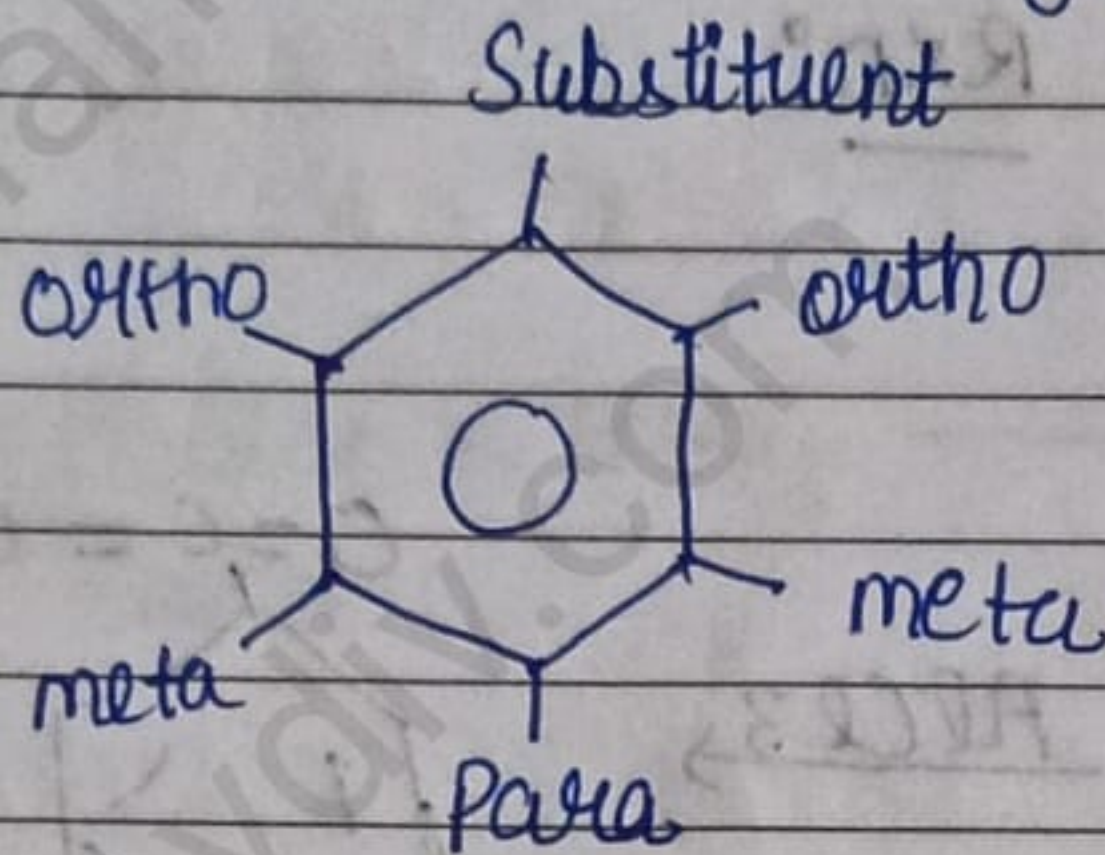 Substituent
ortho ortho
meta meta
Para